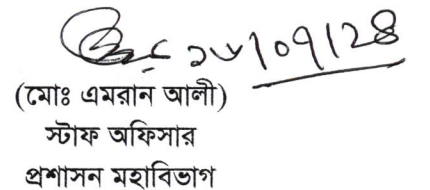 ১৮/০৭/২৪
(মোঃ এমরান আলী)
স্টাফ অফিসার
প্রশাসন মহাবিভাগ